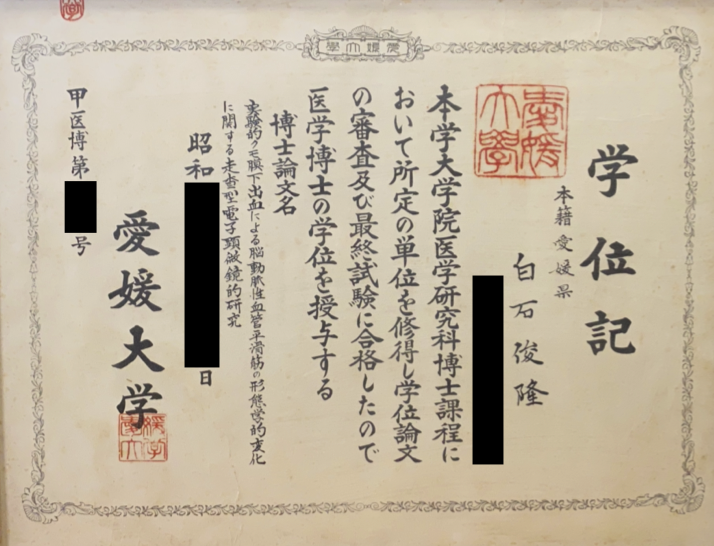 愛媛大學
学位記
本籍 愛媛県
白石俊隆
愛媛大學
本学大学院医学研究科博士課程に
おいて所定の単位を修得し学位論文
の審査及び最終試験に合格したので
医学博士の学位を授与する
博士論文名
実験的クモ膜下出血による脳動脈性血管平滑筋の形態学的変化
に関する走査型電子顕微鏡的研究
昭和 日
愛媛大学
甲医博第 号